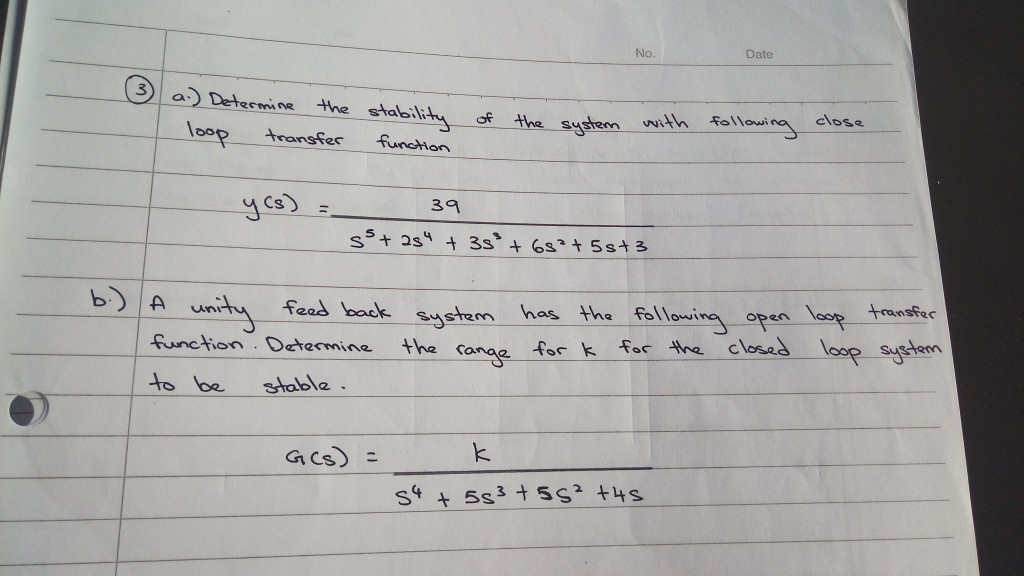 No. Date
③ a.) Determine the stability of the system with following close
loop transfer function
y(s) = 39
s⁵ + 2s⁴ + 3s³ + 6s² + 5s + 3
b.) A unity feed back system has the following open loop transfer
function. Determine the range for k for the closed loop system
to be stable.
G(s) = k
s⁴ + 5s³ + 5s² + 4s